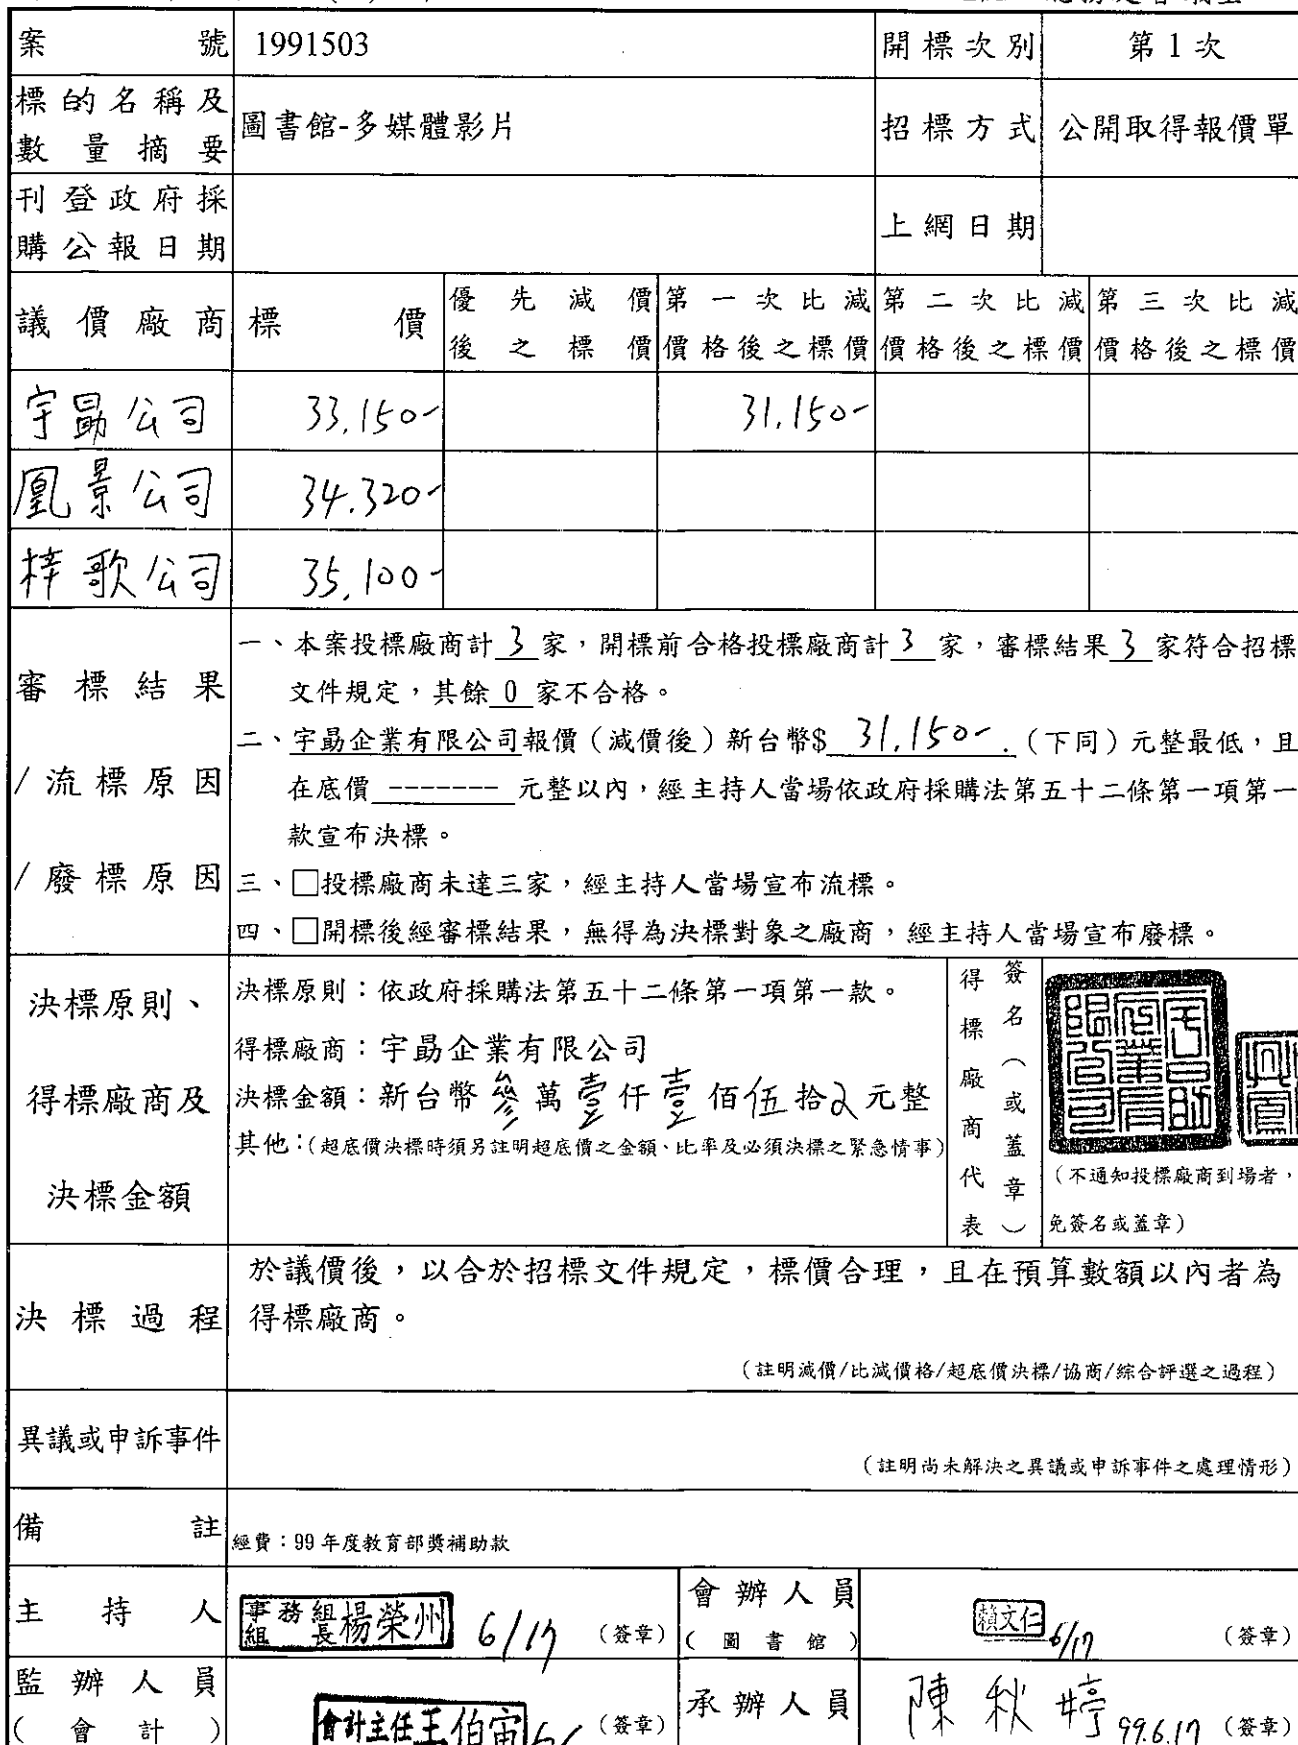 案號 1991503 開標次別 第1次
標的名稱及數量摘要 圖書館-多媒體影片 招標方式 公開取得報價單
刊登政府採購公報日期 上網日期
議價廠商 標價 優先減價後之標價 第一次比減價格後之標價 第二次比減價格後之標價 第三次比減價格後之標價
宇勗公司 33,150- 31,150-
凰景公司 34,320-
梓歌公司 35,100-
審標結果
/流標原因
/廢標原因
一、本案投標廠商計 3 家,開標前合格投標廠商計 3 家,審標結果 3 家符合招標
文件規定,其餘 0 家不合格。
二、宇勗企業有限公司報價(減價後)新台幣$ 31,150-.(下同)元整最低,且
在底價 ------- 元整以內,經主持人當場依政府採購法第五十二條第一項第一
款宣布決標。
三、□投標廠商未達三家,經主持人當場宣布流標。
四、□開標後經審標結果,無得為決標對象之廠商,經主持人當場宣布廢標。
決標原則、
得標廠商及
決標金額
決標原則:依政府採購法第五十二條第一項第一款。
得標廠商:宇勗企業有限公司
決標金額:新台幣參萬壹仟壹佰伍拾元整
其他:(超底價決標時須另註明超底價之金額、比率及必須決標之緊急情事)
得標廠商代表
簽名(或蓋章)
(不通知投標廠商到場者,
免簽名或蓋章)
決標過程
於議價後,以合於招標文件規定,標價合理,且在預算數額以內者為
得標廠商。
(註明減價/比減價格/超底價決標/協商/綜合評選之過程)
異議或申訴事件
(註明尚未解決之異議或申訴事件之處理情形)
備註 經費:99年度教育部獎補助款
主持人 事務組組長楊榮州 6/17 (簽章) 會辦人員(圖書館) 賴文仁 6/17 (簽章)
監辦人員(會計) 會計主任王伯寅 (簽章) 承辦人員 陳秋婷 99.6.17 (簽章)